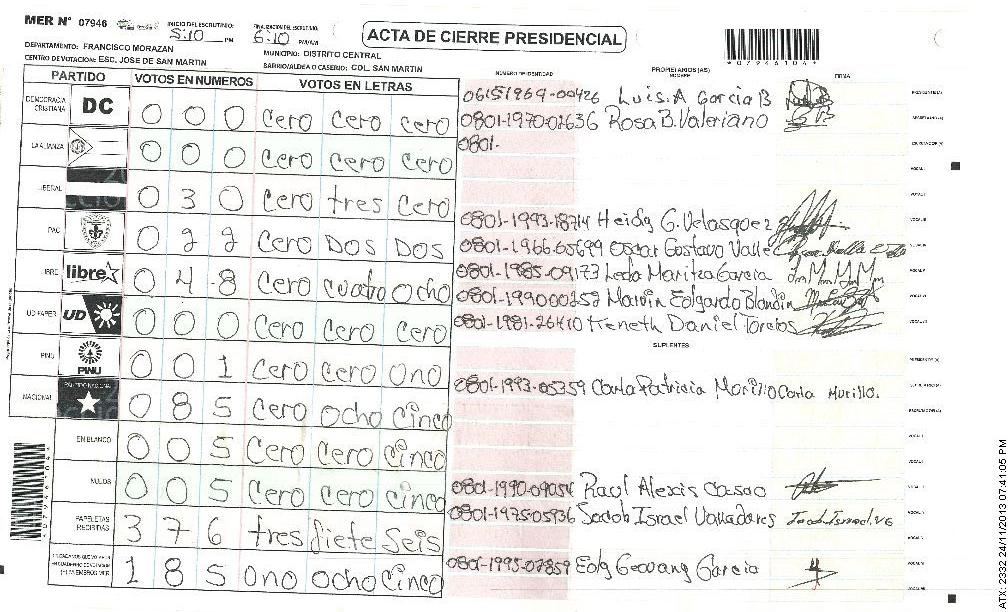 MER N° 07946
INICIO DEL ESCRUTINIO: 5:10 PM
FINALIZACION DEL ESCRUTINIO: 6:10 PM/AM
ACTA DE CIERRE PRESIDENCIAL
*07946104*
DEPARTAMENTO: FRANCISCO MORAZAN
MUNICIPIO: DISTRITO CENTRAL
CENTRO DE VOTACION: ESC. JOSE DE SAN MARTIN
BARRIO/ALDEA O CASERIO: COL. SAN MARTIN
PARTIDO VOTOS EN NUMEROS VOTOS EN LETRAS
NUMERO DE IDENTIDAD PROPIETARIOS (AS) NOMBRE FIRMA
DEMOCRACIA CRISTIANA DC 0 0 0 cero cero cero
LA ALIANZA 0 0 0 cero cero cero
LIBERAL 0 3 0 cero tres cero
PAC 0 2 2 cero DOS DOS
LIBRE libre 0 4 8 cero cuatro ocho
UD FAPER UD 0 0 0 cero cero cero
PINU PINU 0 0 1 cero cero ono
NACIONAL PARTIDO NACIONAL 0 8 5 cero ocho cinco
EN BLANCO 0 0 5 cero cero cinco
NULOS 0 0 5 cero cero cinco
PAPELETAS RECIBIDAS 3 7 6 tres siete seis
1 8 5 ono ocho cinco
06151969-00426 Luis.A Garcia B PRESIDENTE(A)
0801-1970-02636 Rosa B. Valeriano SECRETARIO(A)
0801- ESCRUTADOR(A)
VOCAL I
0801-1993-18714 Heidy G. Velasquez
0801-1966-05699 Oscar Gustavo Valle
0801-1985-09173 Leda Maritza Garcia
0801-199000252 Marvin Edgardo Blandin
0801-1981-26410 Keneth Daniel Torelos
SUPLENTES
PRESIDENTE (A)
0801-1993-05359 Carla Patricia Morillo Carla Murillo. SECRETARIO(A)
ESCRUTADOR(A)
0801-1990-09054 Raul Alexis
0801-1975-05936 Jacob Israel Valladares
0801-1995-07859 Edy Geovany Garcia
*07946104*
ATX: 2332 24/11/2013 07:41:05 PM